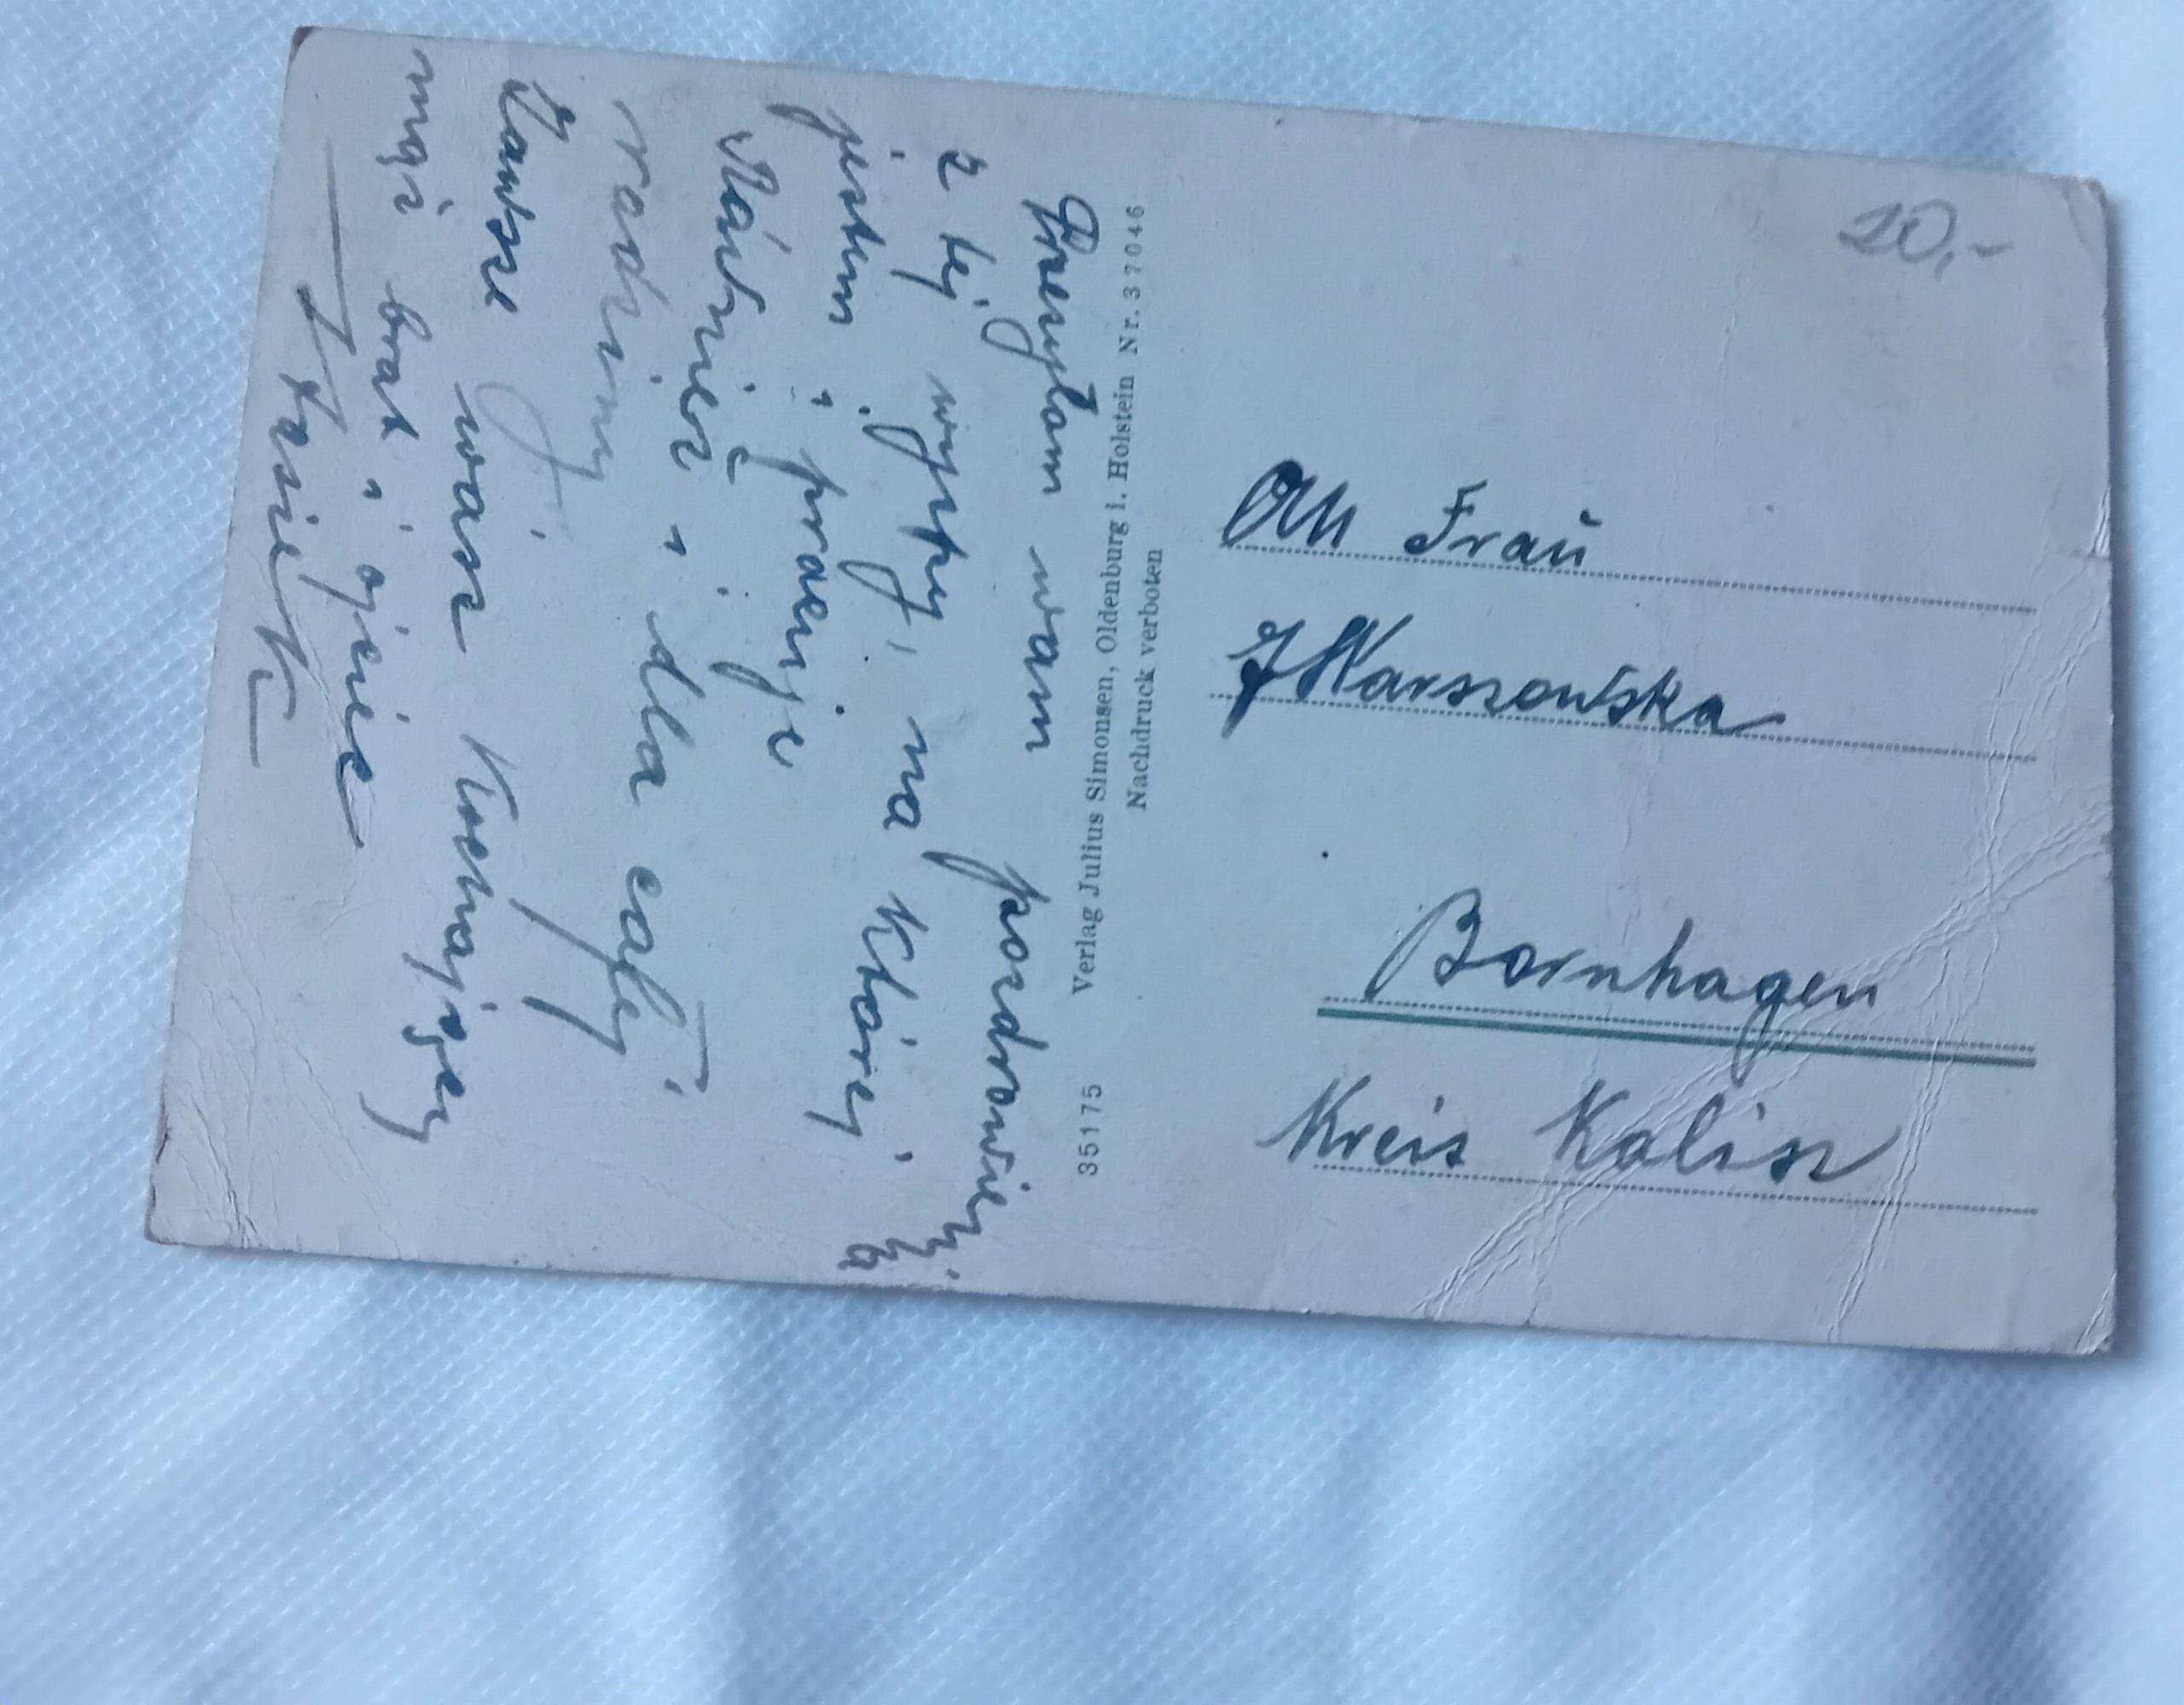 Przesyłam wam pozdrowień
z tej wyspy, na której
jestem i pracuje
Rówńież i dla całej
rodziny
Zawsze wasz kochający
mąż brat i ojciec
Stasiek
35175 Verlag Julius Simonsen, Oldenburg i. Holstein Nr. 37046
Nachdruck verboten
20,-
An Frau
Warszowska
Bornhagen
Kreis Kalisz